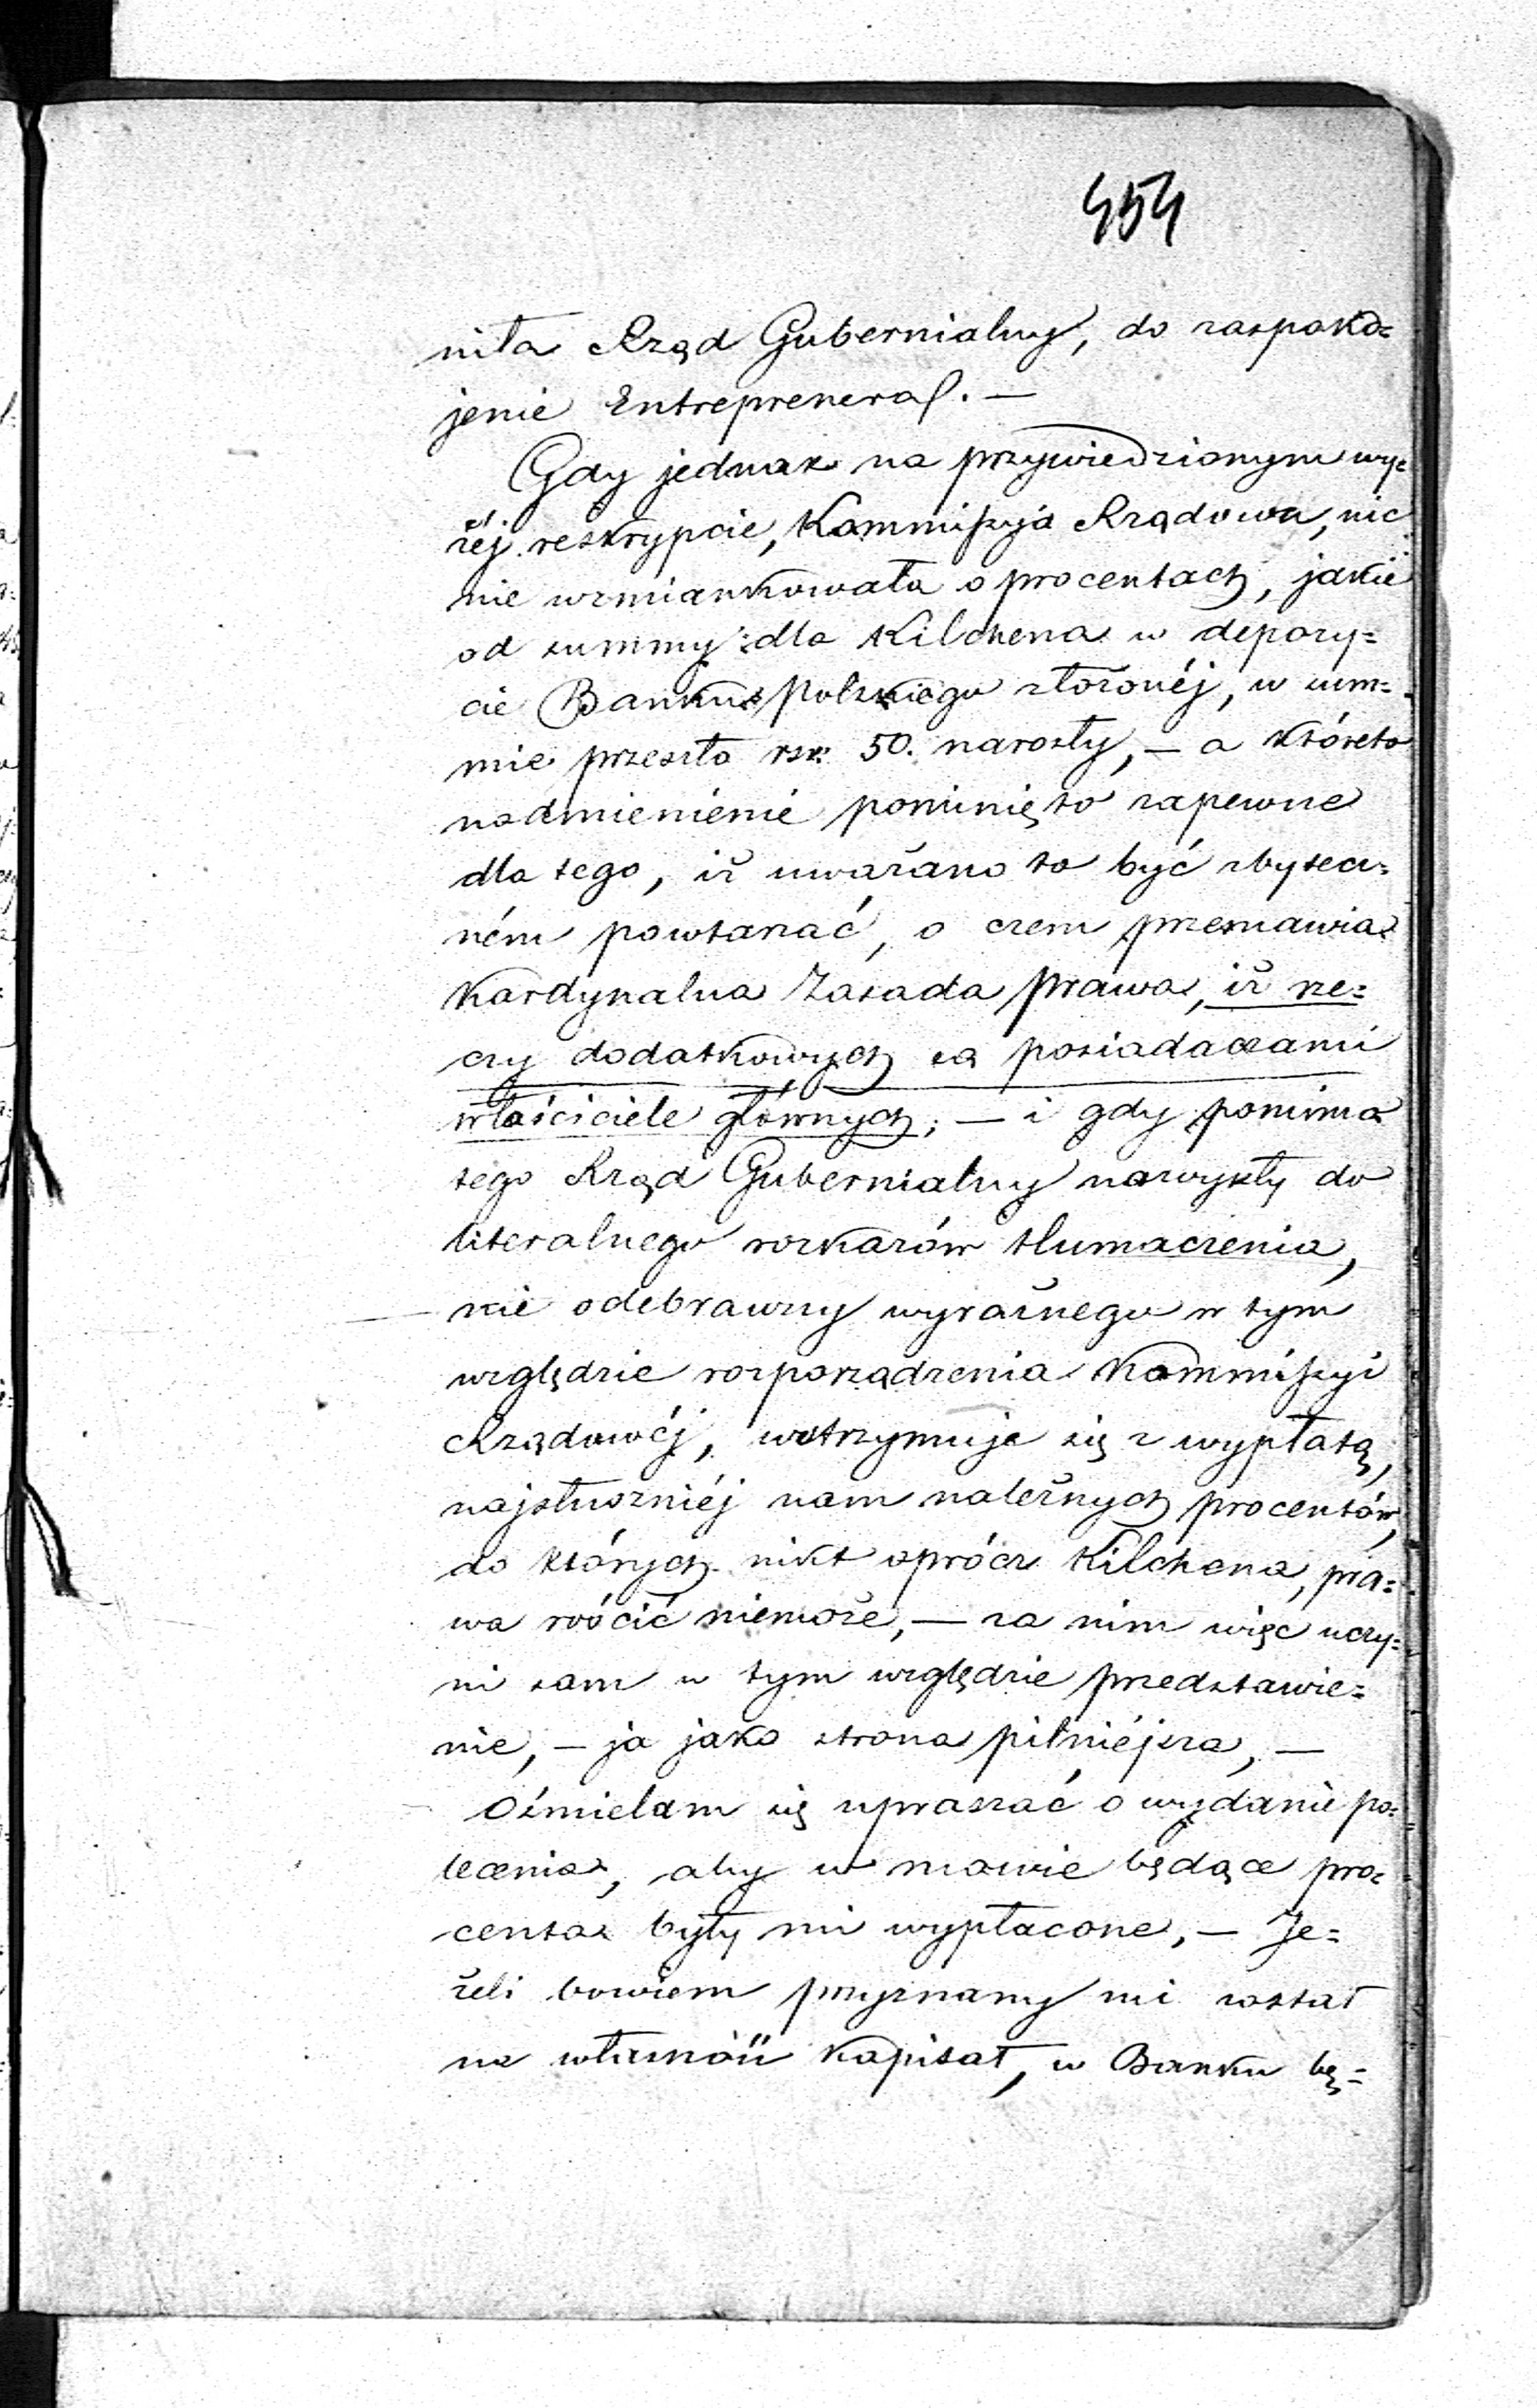 454
niła Rząd Gubernialny, do zaspoko=
jenie Entreprenera. —
Gdy jednak na przywiedzionym wy=
żéj reskrypcie, Kommissyja Rządowa, nic
nie wzmiankowała o procentach, jakie
od summy dla Kilchena w depozy=
cie Banku Polskiego złożonéj, w sum=
mie przeszło rsr. 50. narosły, — a któreto
nadmienienie pominięto zapewne
dla tego, iż uważano to być zbytecz=
ném powtarzać, o czem przemawia
Kardynalna Zasada Prawa, iż rze=
czy dodatkowych są posiadaczami
właściciele głównych; — i gdy pomimo
tego Rząd Gubernialny nawykły do
literalnego rozkazów tłumaczenia,
nie odebrawszy wyraźnego w tym
względzie rozporządzenia Kommissyi
Rządowéj, wstrzymuje się z wypłatą,
najsłuszniéj nam należnych procentów,
do których nikt oprócz Kilchena, pra=
wa rościć niemoże, — za nim więc uczy=
ni sam w tym względzie przedstawie=
nie, — ja jako strona pilniéjsza, —
Ośmielam się upraszać o wydanie po=
lecenia, aby w mowie będące pro=
centa były mi wypłacone, — Je=
żeli bowiem przyznany mi został
na własność kapitał, w Banku bę=